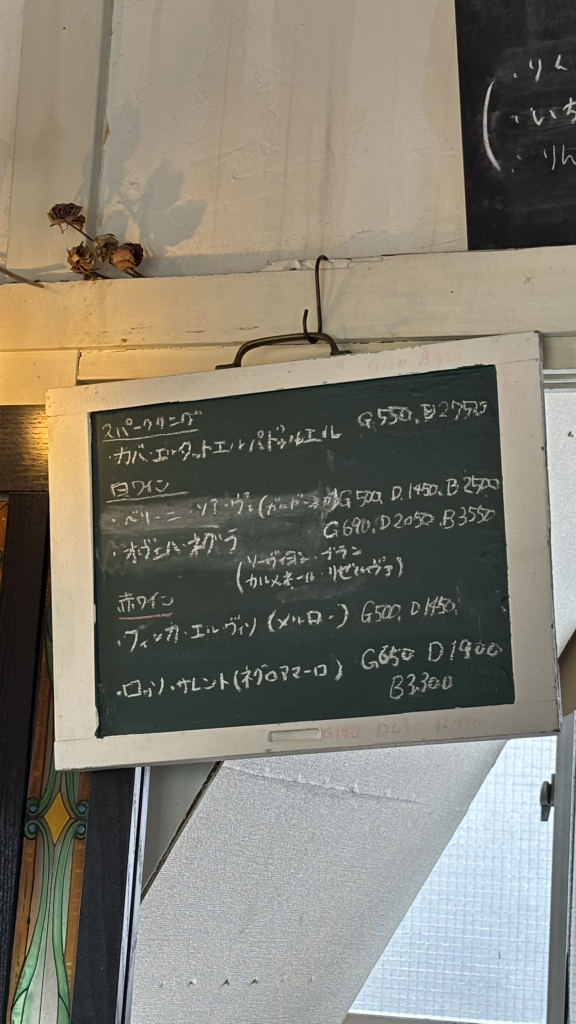 ・りん
・いち
・りん
スパークリング
・カバ・エル・タットエル パドゥルエル G550, B2750
白ワイン
・ベリーニ・ソアーヴェ(ガルガーネガ) G500, D.1450, B2500
・オヴェハ・ネグラ G690, D2050, B3550
(ソーヴィヨン・ブラン
カルメネール・リゼルヴァ)
赤ワイン
・フィンカ・エル・ヴィソ (メルロー) G500, D1450,
・ロッソ・サレント(ネグロアマーロ) G650 D1900
B3,300